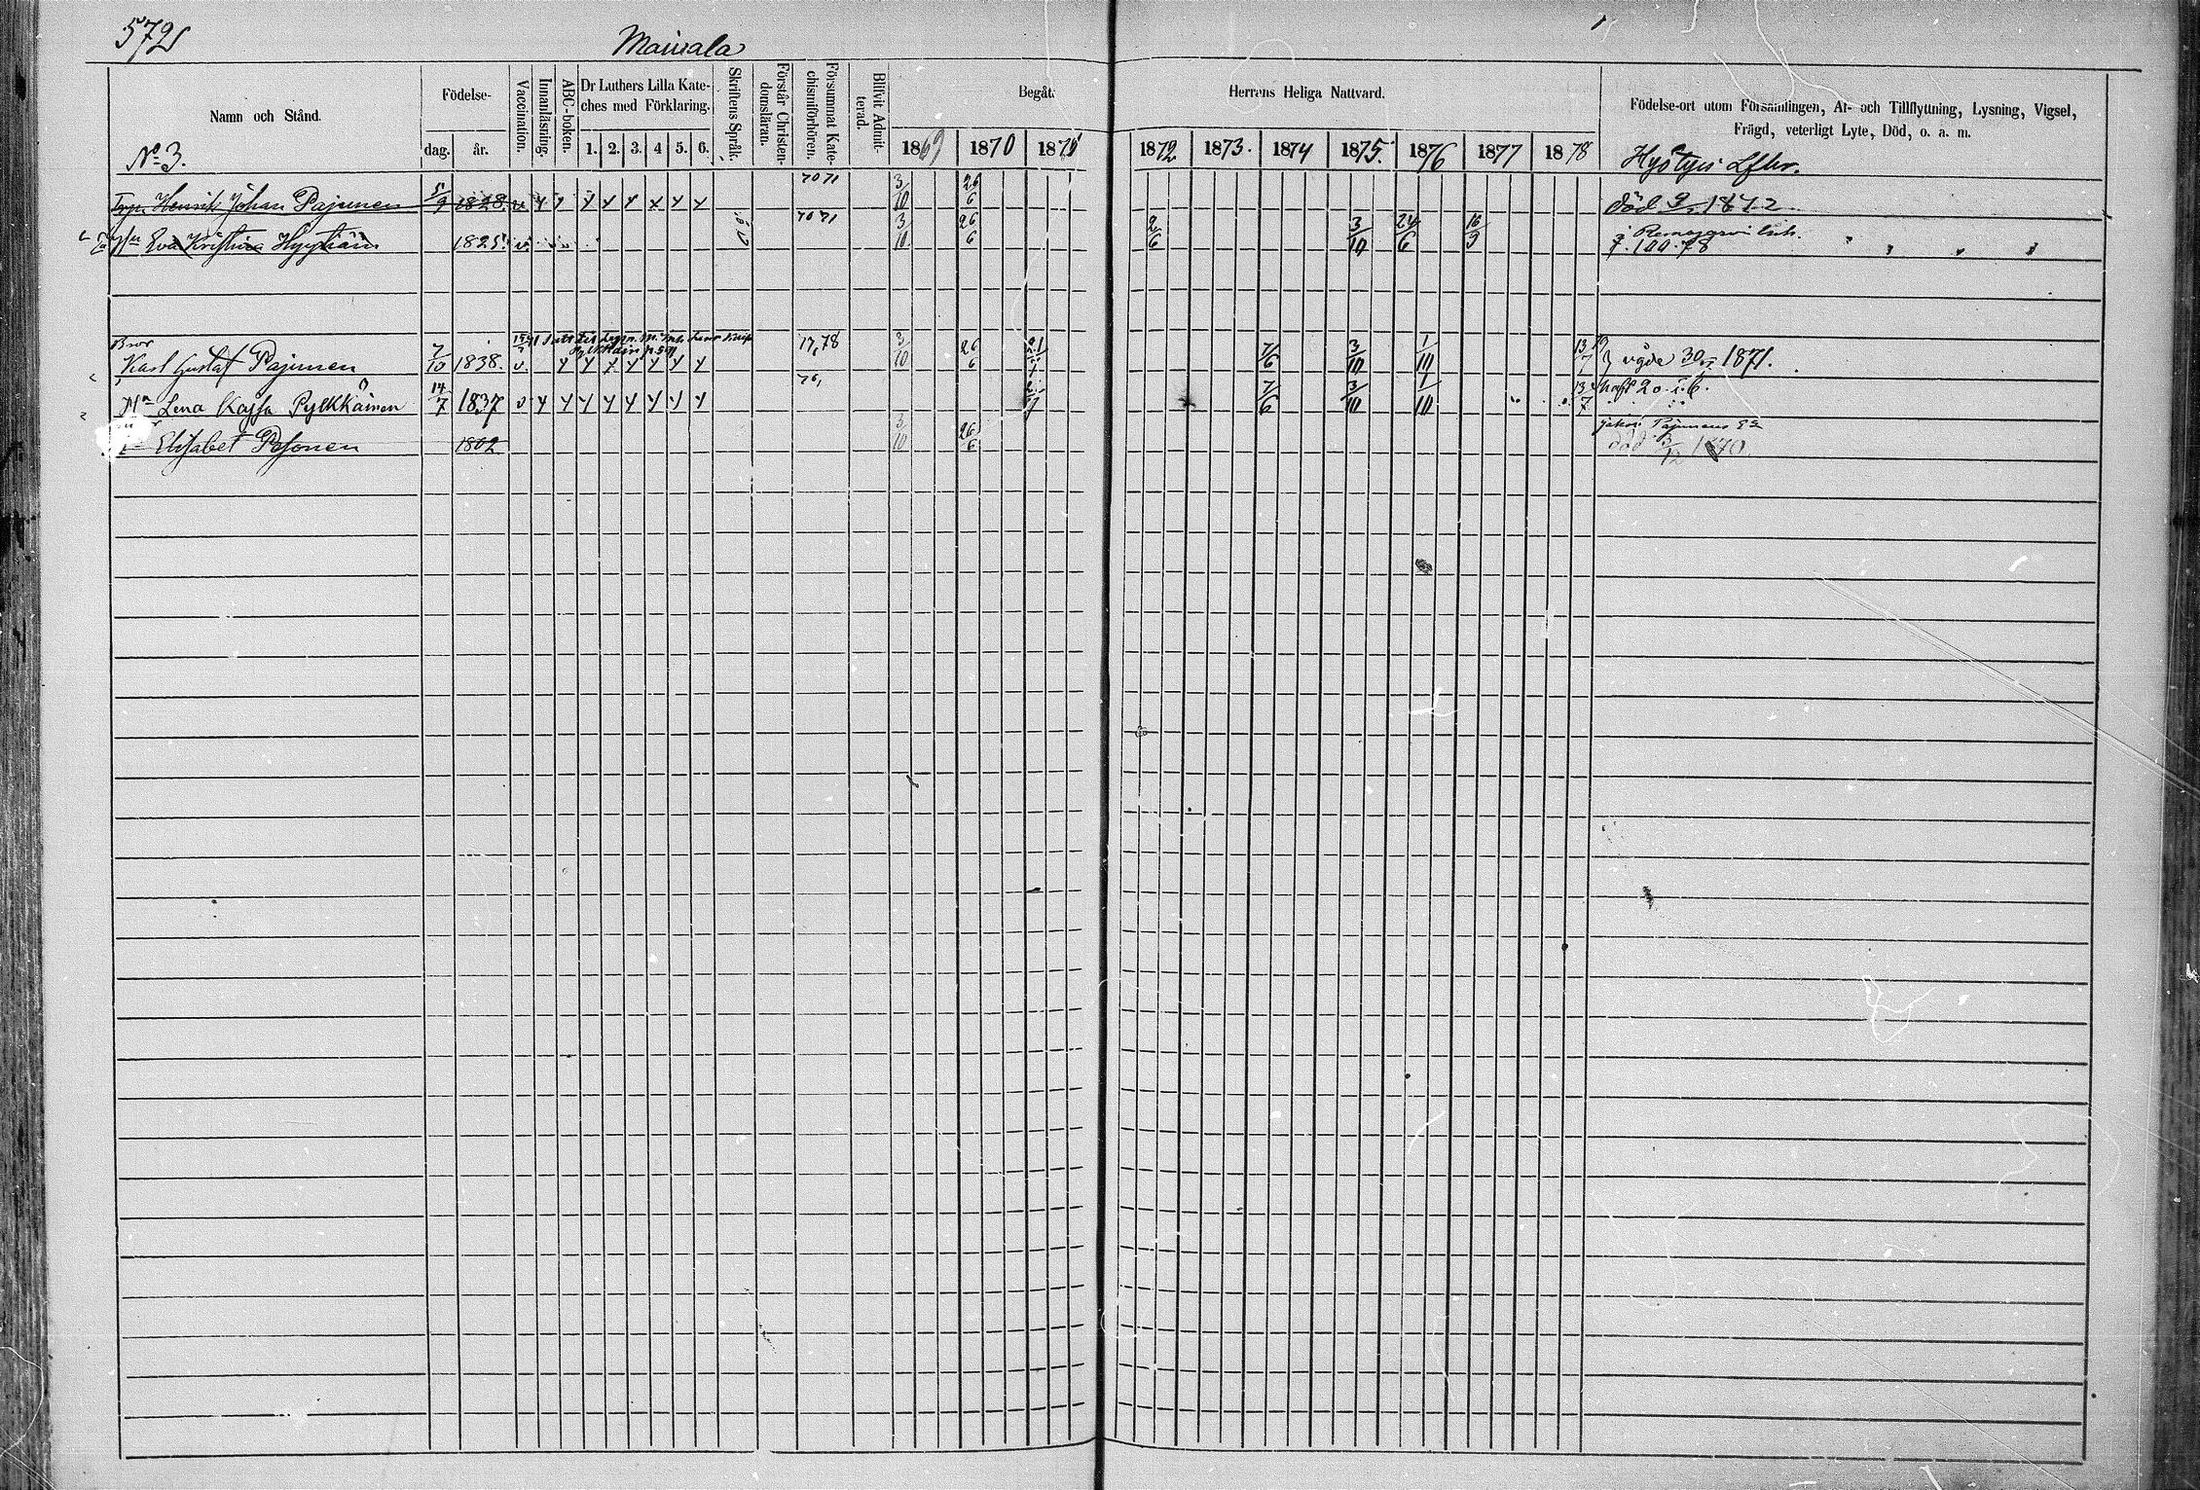 572
Mainala
Namn och Stånd.
Födelse-
dag.
år.
Vaccination.
Innanläsning.
ABC-boken.
Dr Luthers Lilla Kate-
ches med Förklaring.
1. 2. 3. 4 5. 6.
Skriftens Språk.
Förstår Christen-
domsläran.
Försummat Kate-
chismiförhören.
Blifvit Admit-
terad.
Begåt
Herrens Heliga Nattvard.
1869 1870 1871 1872 1873. 1874 1875. 1876 1877 1878
Födelse-ort utom Församlingen, Af- och Tillflyttning, Lysning, Vigsel,
Frägd, veterligt Lyte, Död, o. a. m.
No 3.
Henrik Johan Pajunen 5/9 1828. v 70 71 3/10 26/6 död 1872
Eva Kristina 1825 v 70 71 3/10 26/6 2/6 3/10 24/6 16/9
Bror
Karl Gustaf Pajunen 7/10 1838. v. 77,78 3/10 26/6 7/6 3/10 1/10 13/7 1871.
Lena Kajsa Pylkkänen 14/7 1837 v 76, 7/6 3/10 1/10 13/7
Elisabet 1802 3/10 26/6 död 1870